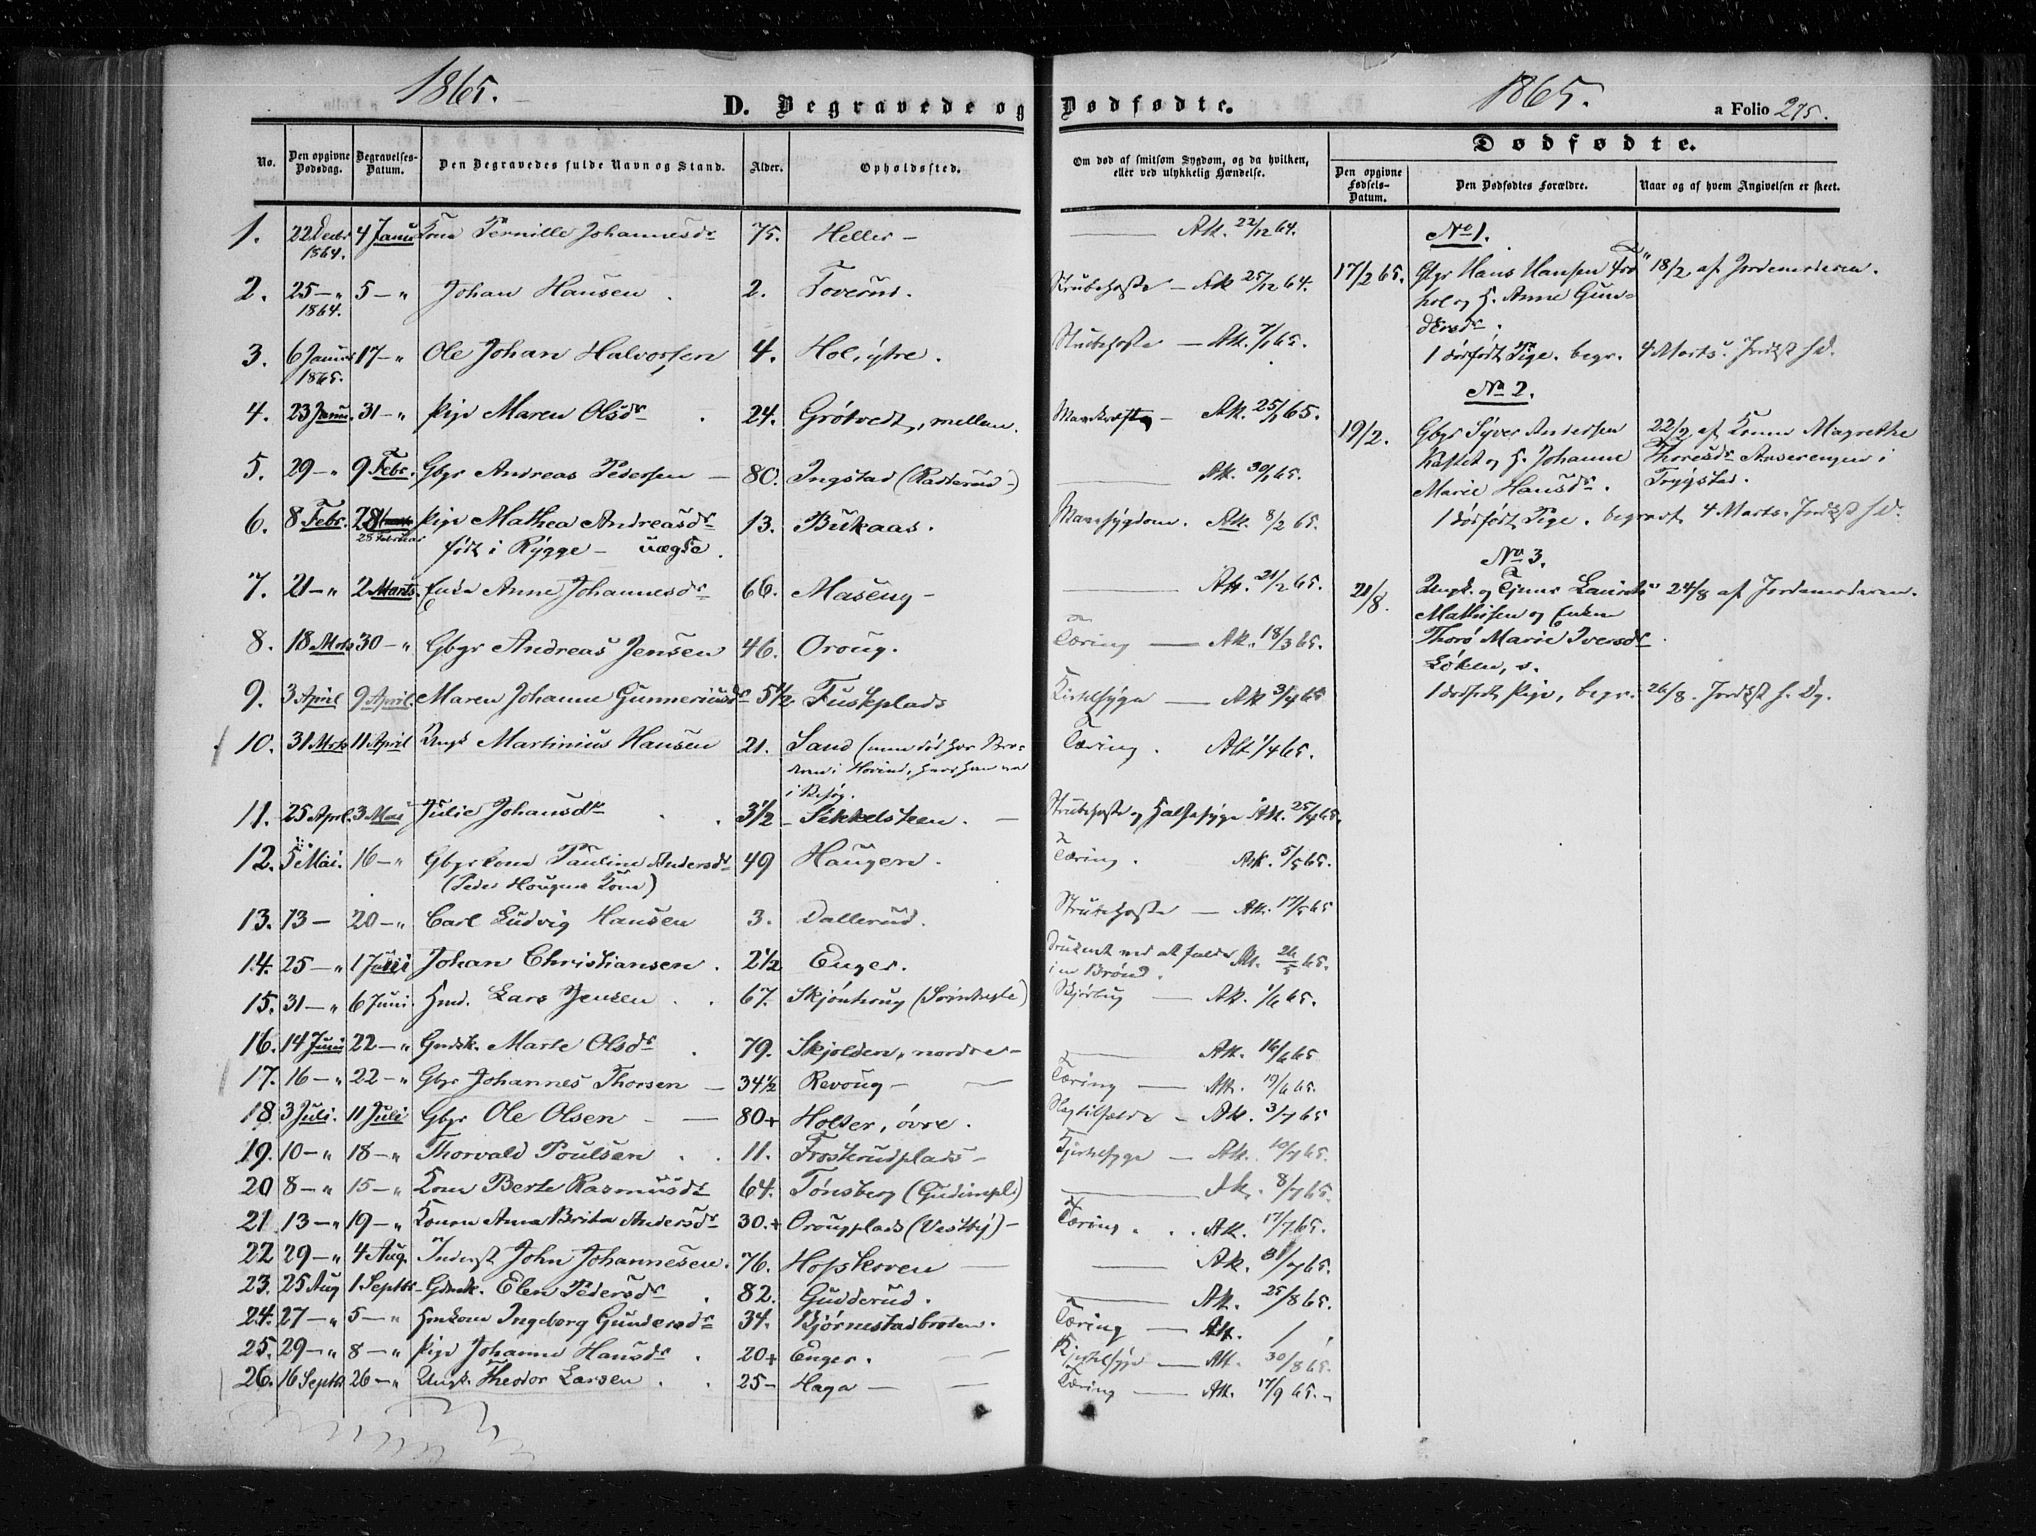 1865.
D. Begravede og Dødfødte.
1865.
a Folio 275.
No.
Den opgivne Dødsdag.
Begravelses-Datum.
Den Begravedes fulde Navn og Stand.
Alder.
Opholdssted.
Om død af smitsom Sygdom, og da hvilken, eller ved ulykkelig Hændelse.
Dødfødte.
Den opgivne Fødsels-Datum.
Den Dødfødtes Forældre.
Naar og af hvem Angivelsen er skeet.
1. 22 Decbr 1864. 4 Janu Kone Pernille Johannesdr 75. Heller – Ak. 22/12 64.
2. 25 – " 1864. 5 – " Johan Hansen 2. Toverud. Strubehoste – Ak 25/12 64.
3. 6 Januar 1865. 17 – " Ole Johan Halvorsen 4. Hol, ytre. Strubehoste – Ak. 7/1 65.
4. 23 Janu. 31 – " Pige Maren Olsdr 24. Grøtvedt, mellem. Ak. 25/1 65.
5. 29 – " 9 Febr. Gbgr Andreas Pedersen – 80. Ingstad Ak. 30/1 65.
6. 8 Febr. 28 28 Februar Pige Mathea Andreasdr 13. Bukaas. Ak. 8/2 65.
født i Rygge – uægte.
7. 21 – " 2 Marts. Enke Anne Johannesdr 66. Maseng – Ak. 21/2 65.
8. 18 Mrts 30 – " Gbgr Andreas Jensen 46. Oroug. Tæring – Ak. 18/3 65.
9. 3 April 9 April. Maren Johanne Gunneriusdr 5 1/2 Fuskplads Kirtelsyge – Ak 3/4 65
10. 31 Mrts 11 April Ungk Martinius Hansen 21. Sand (men død hos Broderen i Hovind, hvor han var i Besøg. Tæring. Ak 1/4 65.
11. 25 Apl. 3 Mai Julie Johansdr 3 1/2 – Sekkelsteen. – Strubehoste og Halssyge Ak. 25/4 65.
12. 5 Mai. 16 – " Gbgrkone Pauline Andersdr 49 Haugen. Tæring. Ak. 5/5 65.
(Peder Hougens Kone)
13. 13 – 20 – " Carl Ludvig Hansen 3. Dallerud. Strubehoste – Ak. 17/5 65
14. 25 – " 1 Juni Johan Christiansen. 2 1/2 Enger. Druknet ved at falde i en Brønd. Ak. 26/5 65.
15. 31 – " 6 Juni. Hmd. Lars Jensen 67. Skjørbug – Ak. 1/6 65.
16. 14 Juni 22 – " Gmdsk. Marte Olsdr 79. Skjolden, nordre – Ak. 16/6 65
17. 16 – " 22 – " Gbgr Johannes Thorsen – 34 1/2 Revoug – Tæring – Ak. 19/6 65.
18 3 Juli. 11 Juli Gbgr Ole Olsen – 80+ Holter, øvre. Slagtilfælde – Ak. 3/7 65
19. 10 – " 18 – " Thorvald Poulsen 11. Froskerudplads – Kjertelsyge – Ak. 10/7 65.
20 8 – " 15 – " Kone Berte Rasmusdr 64. Tønsberg Ak. 8/7 65.
21. 13 – " 19 – " Konen Anna Brita Andersdr 30.+ Orougplads (Vestby) – Tæring. Ak. 17/7 65.
22 29 – " 4 Aug. Inderst John Johannesen. 76. Hopskoven – Ak. 31/7 65.
23. 25 Aug 1 Septbr Gdmk. Elen Pedersdr 82. Gudderud. Ak. 25/8 65.
24. 27 – " 5 – " Hmkone Ingeborg Gundersdr 34. Bjørnestadbraten. Tæring – Ak.
25. 29 – " 8 – " Pige Johanne Hansdr 20+ Enger. Kjertelsyge – Ak. 30/8 65.
26. 16 Septbr 26 – " Ungk. Theodor Larsen 25 – Haga – Tæring – Ak. 17/9 65. –
No 1.
17/2 65. Gbgr Hans Hansen
hol og H. Anne Gun-
dersdr.
18/2 af Jordemoderen.
1 dødfødt Pige. begr. 4 Marts. Jordkst s. D.
No 2.
19/2. Gbgr Syver Andersen
og H. Johanne
Marie Hansdr.
22/2 af Konen Magrethe
Thoresdr i
Trygstad.
1 dødfødt Pige. begravet 4 Marts. Jordkst s. D.
No 3.
21/8. Ungk. og Tjener Laurits
Mathisen og Enken
Thora Marie Iversdr
Løken, v.
24/8 af Jordemoderen.
1 dødfødt Pige, begr. 26/8. Jordkst s. Dg.